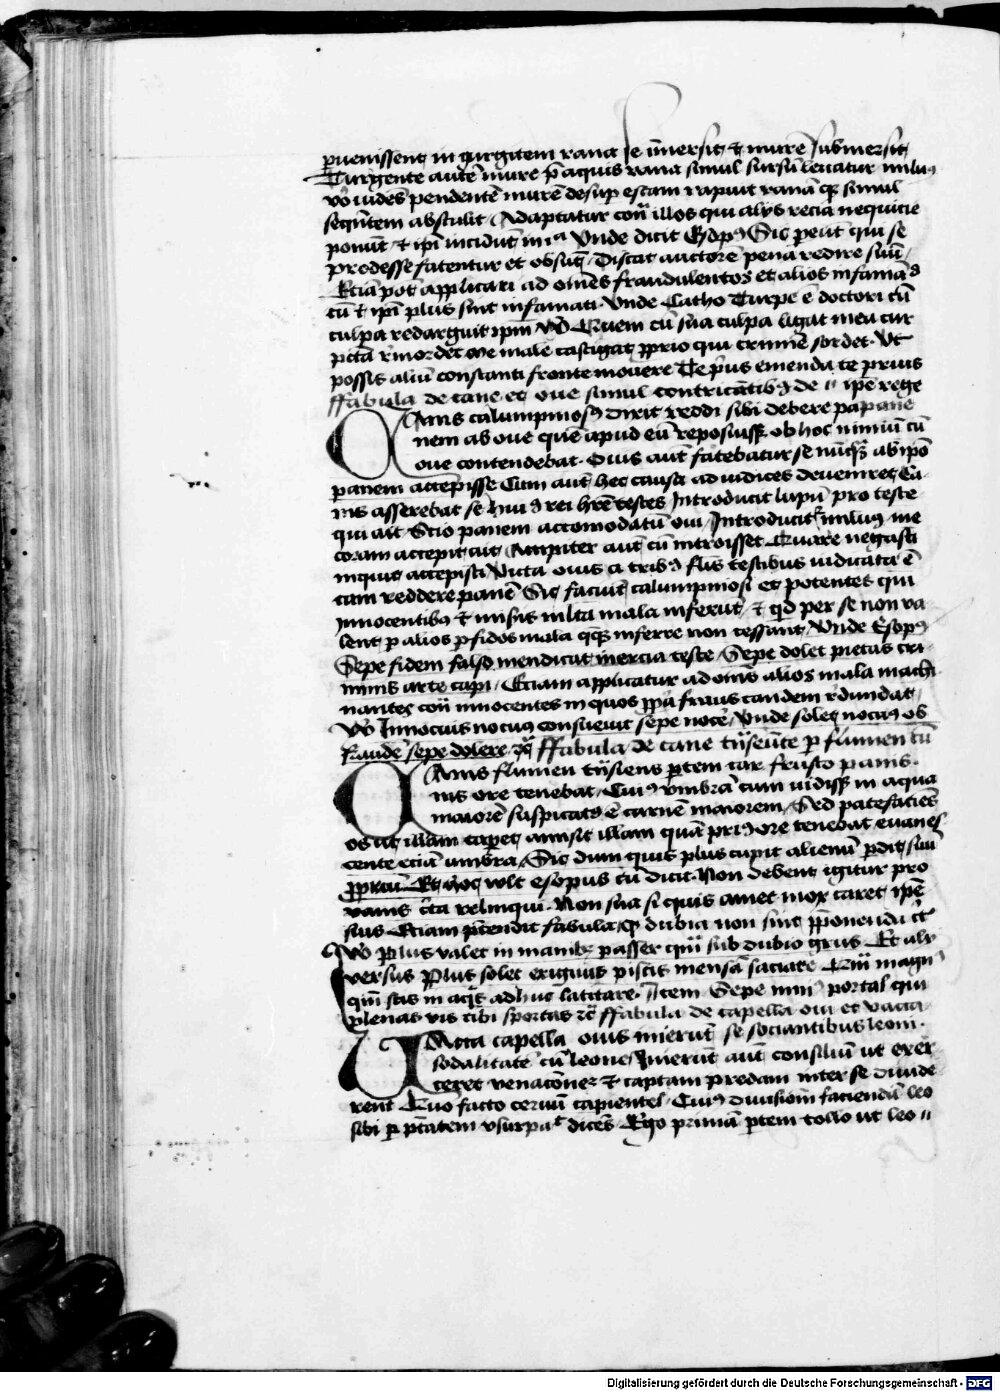 puenissent in gurgitem rana se im̄ersit et murē submersit
Turgente autē mure p̄ aquis rana simul sursū leuatur miluꝰ
vo᷑ uidēs pendentē murē desup escam rapuit ranā qꝫ simul
sequētem abstulit Adaptatur cont͛ illos qui alys recia nequicie
ponūt et ip̄i incidūt in ea Unde dicit Esopꝰ Sic peūt qui se
prodesse fatentur et obsūt Discat auctorē pena redire suū
Eciā pōt applicari ad om̄es fraudulentos et alios infamādꝰ
cū et ip̄i plus sint infamati Unde Catho Turpe ē doctori cū
culpa redarguit ip̄m Quem cū sua culpa ligat mea cur
pctā r̄mordet me male castigat ꝓprio qui crimīe sordet Ut
possis aliū constanti fronte mouere Te p̄us emenda te prius
ffabula de cane et oue simul contricātibꝰ de ip̄e rege
Canis calumpniosꝰ dixit reddi sibi debere pa pane
nem ab oue quē apud eū reposuissꝫ ob hoc nimiū cū
oue contendebat Ouis aut̄ fatebatur se nūqꝫ ab ip̄o
panem accepisse Cum aut̄ hec causa ad iudices deueniret Ca
nis asserebat se huiꝰ rei hr̄e testes Introducit lupū pro teste
qui ait Scio panem accomodatū oui Introducitr miluꝰ me
coram accepit ait Accipiter aut̄ cū introisset Quare negasti
inquit accepisti Victa ouis a tribꝰ fl̄is testibus iudicata ē
tam reddere panē Sic faciūt calumpniosi et potentes qui
innocentibꝰ et iustis m̄lta mala inferūt et qd per se non va
lent p alios pfidos mala qqꝫ inferre non cessant Unde Esopꝰ
Sepe fidem falso mendicat inercia teste Sepe dolet pietas cri
minis arte capi Eciam applicatur ad om̄s alios mala machi
nantes cont͛ innocentes in quos ꝓpa fraus tandem r̄dundat
Vo Innocuis nocuꝰ consueuit sepe nocē Unde solet nocuꝰ ob
fraudē sepe dolere ffabula de cane t͛nseūte p flumen cū
Canis flumen t͛nsiens ptem car frusto panis
nis ore tenebat Cuiꝰ vmbrā cum uidissꝫ in aqua
maiorē suspicatꝰ ē carnē maiorem Sed patefaciēs
os ut illam caperet amisit illam quā priꝰ ore tenebat euanes
cente eciā umbra Sic dum quis plus cupit alienū pdit suū
ꝓprium Et hoc vult esopus cū dicit Non debent igitur pro
vanis c͛ta relinqui Non sua si quis amet mox caret ip̄e
suis Eciam p̄tendit fabula qꝫ dubia non sint p̄ponenda c͛t
Vo Plus valet in manibꝫ passer qm̄ sub dubio grus Et aly
versus Plus solet exiguus piscis mensā saciare Qm̄ magnꝰ
qm̄ scis in aqis adhuc latitare Item Sepe portat qui
plenas vis tibi sportas ffabula de capella oui et vacca
Vacca capella ouis inierūt se sociantibus leoni
sodalitatē cū leone Inierūt aut̄ consiliū ut exer
ceret venac̄ionez et captam predam inter se diuide
rent Quo facto ceruū capientes Cuiꝰ diuisionī faciendā leo
sibi p ptātem vsurpāt dicēs Ego primā ptem tollo ut leo
Digitalisierung gefördert durch die Deutsche Forschungsgemeinschaft - DFG